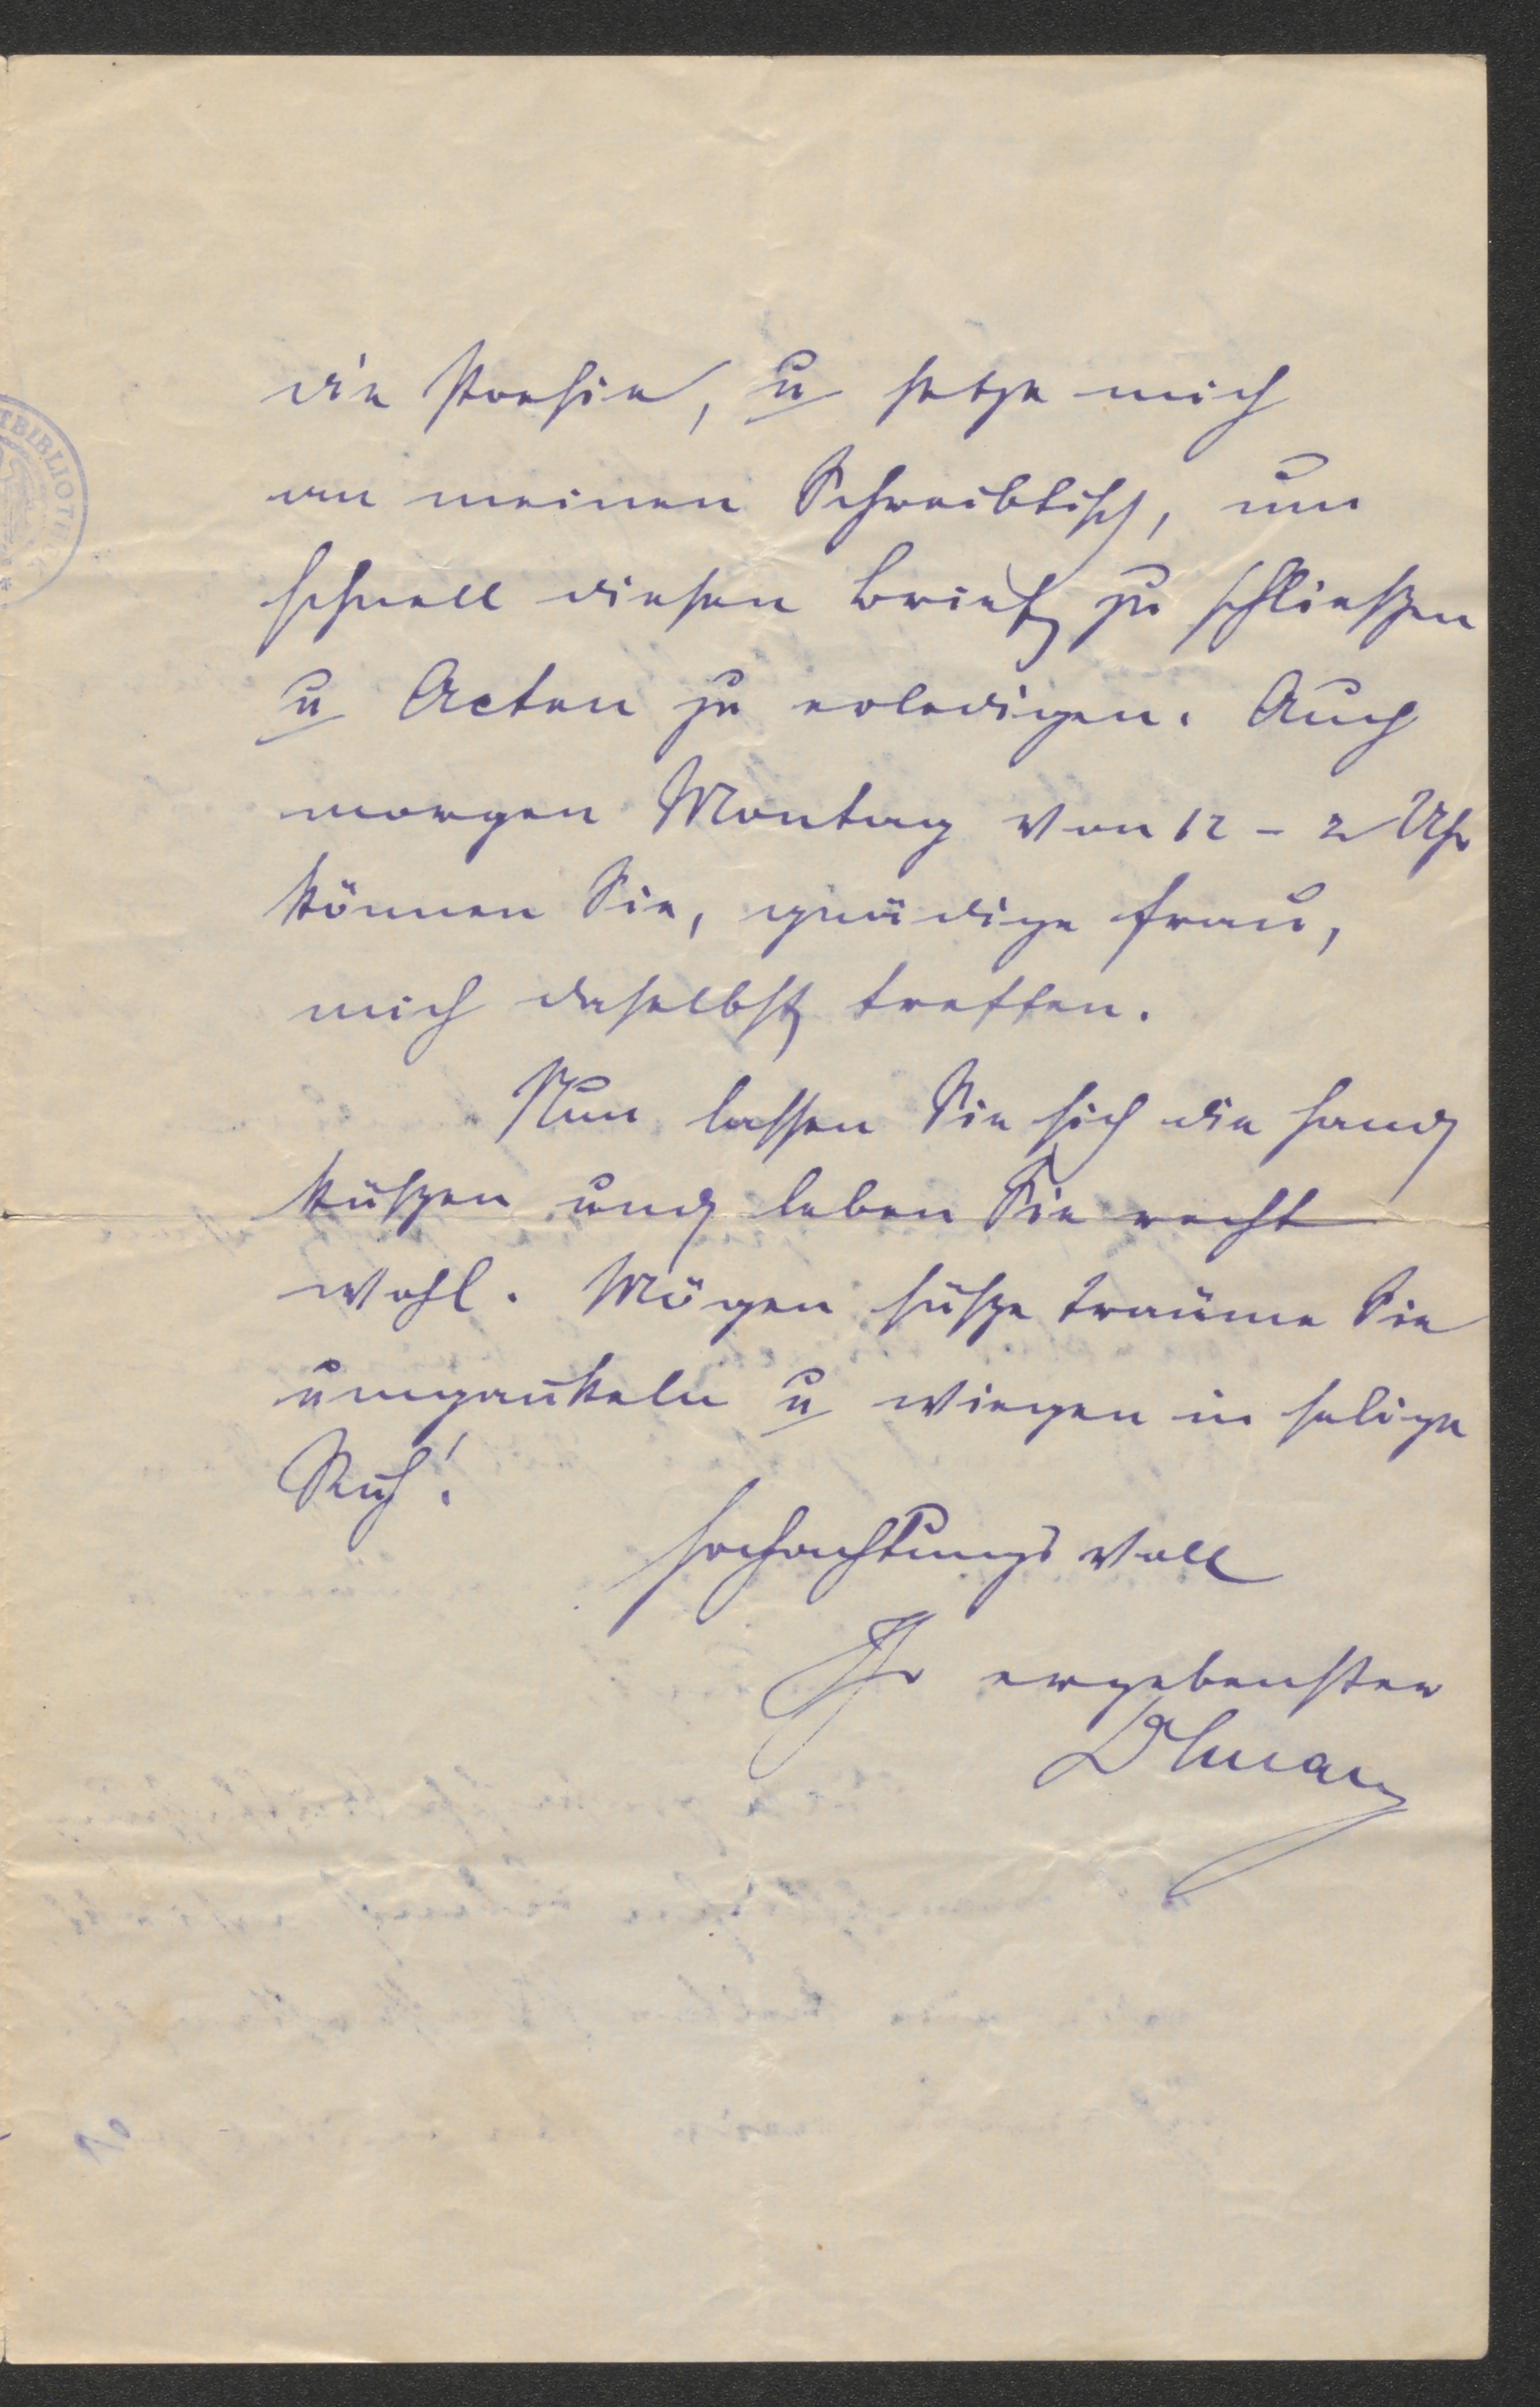 die Poesie, u setze mich
an meinen Schreibtisch, um
schnell diesen Brief zu schließen
u Acten zu erledigen. Auch
morgen Montag von 12 - 2 Uhr
können Sie, gnädige Frau,
mich daselbst treffen.
Nun lassen Sie sich die Hand
küßen und leben Sie recht
wohl. Mögen süße Träume Sie
umgaukeln u wiegen in selige
Ruh!
Hochachtungsvoll
Ihr ergebenster
TBIBLIOTH